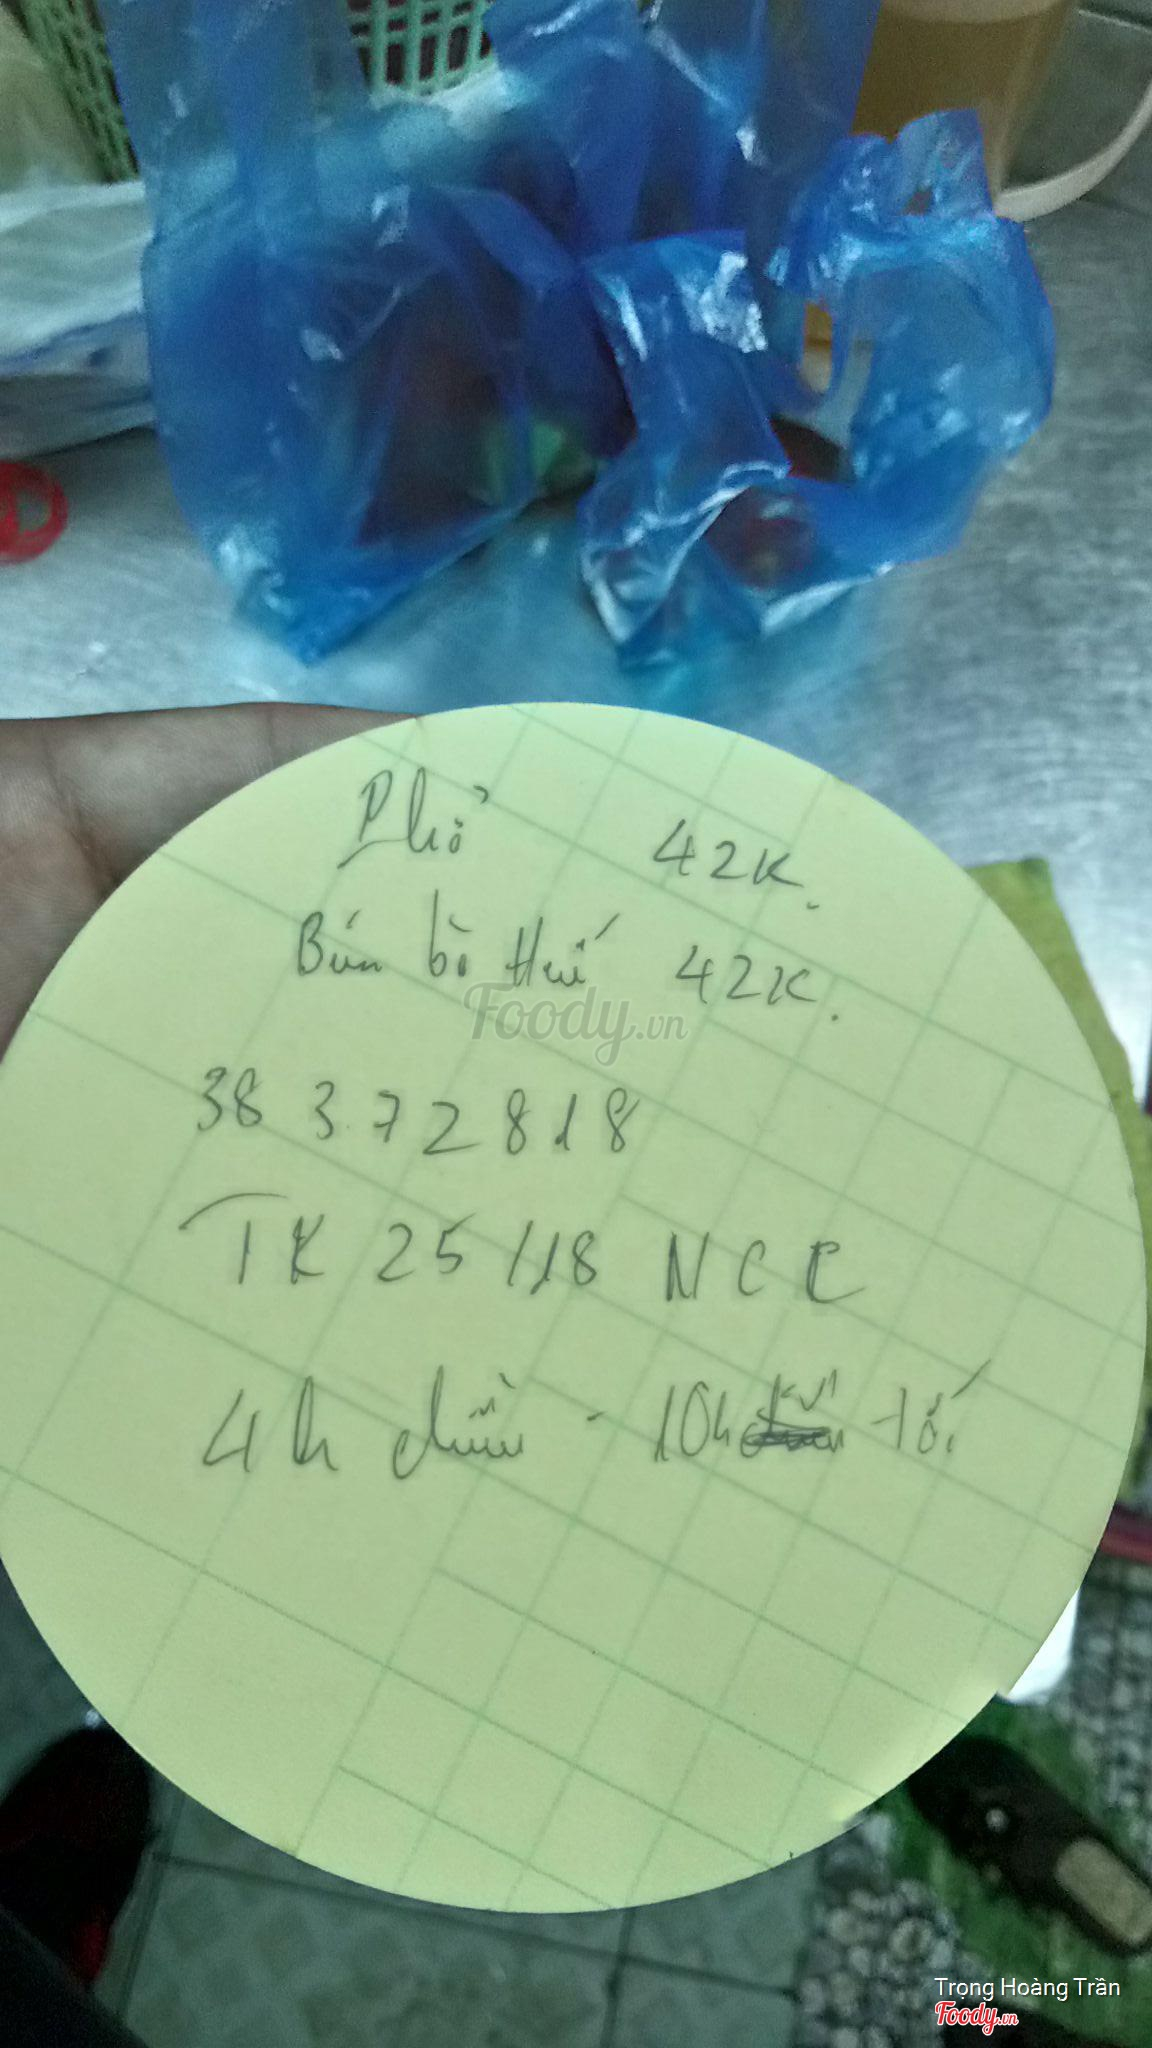 Phở 42K.
Bún bò Huế 42K.
Foody.vn
38 3 72 818
TK 25/18 NCC
4h chiều - 10h tối
Trọng Hoàng Trần
Foody.vn